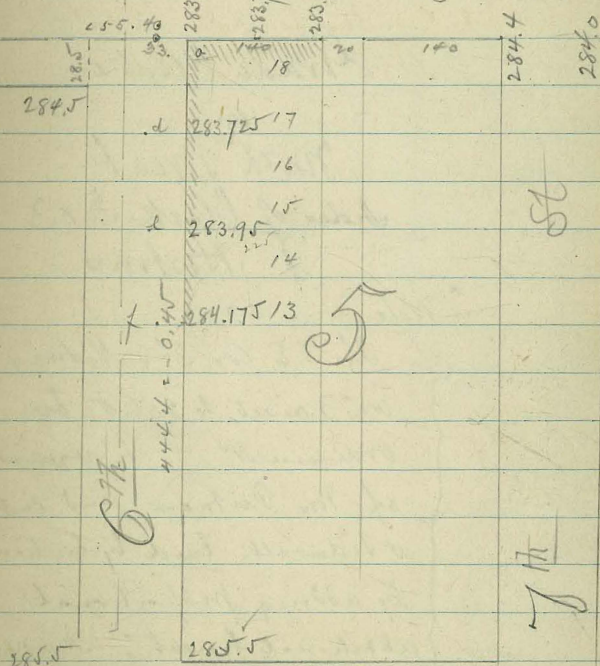 283
283.
283.
284.4
284.0
33.
0
140
20
140
28.5
18
284.5
d
283.725 17
16
15
e
283.95
225
14
f
284.175 13
5
444.4 = -0.45
6th
St
7th
285.5
285.5